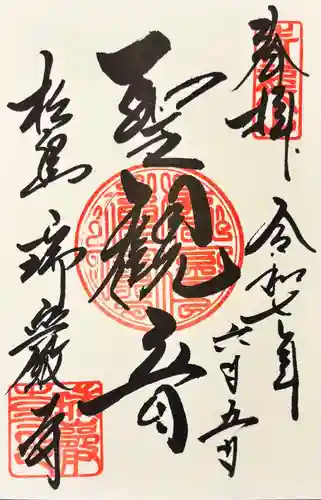 奉拝
令和七年
六月五日
聖観音
松島 瑞巌寺